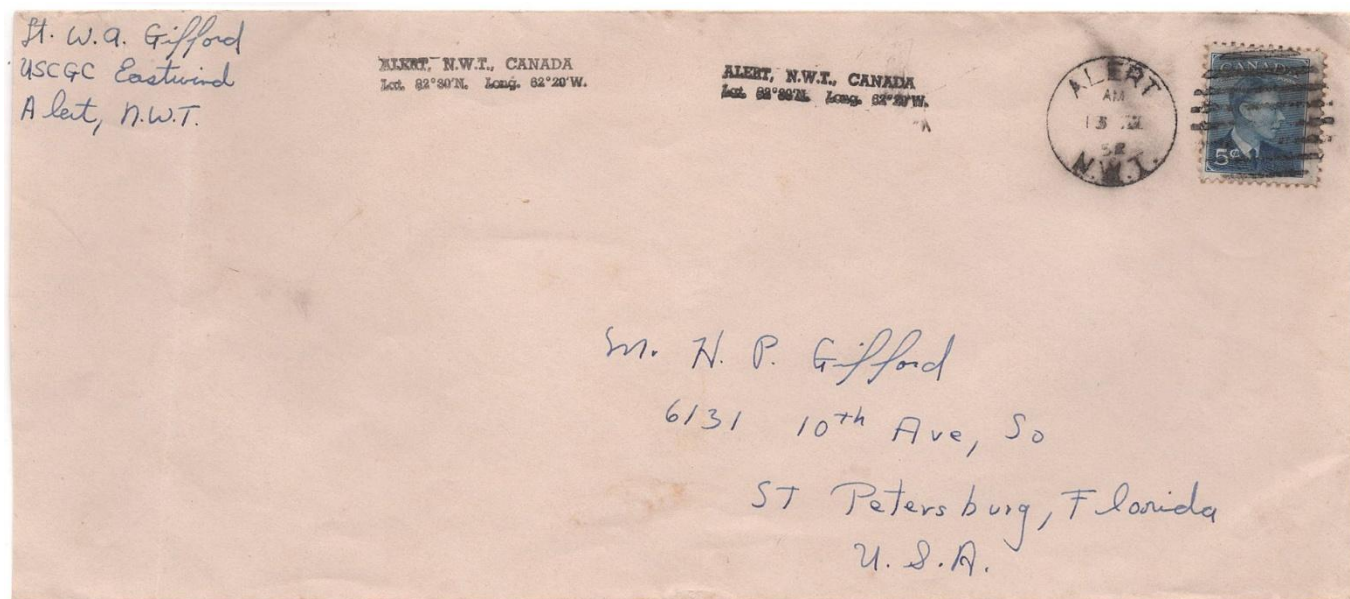 Lt. W.A. Gifford
USCGC Eastwind
Alert, N.W.T.
ALERT, N.W.T., CANADA
Lat. 82°30'N. Long. 62°20'W.
ALERT, N.W.T., CANADA
Lat. 82°30'N. Long. 62°20'W.
ALERT
AM
52
N.W.T.
CANADA
5¢
Mr. H. P. Gifford
6131 10th Ave, So
ST Petersburg, Florida
U.S.A.